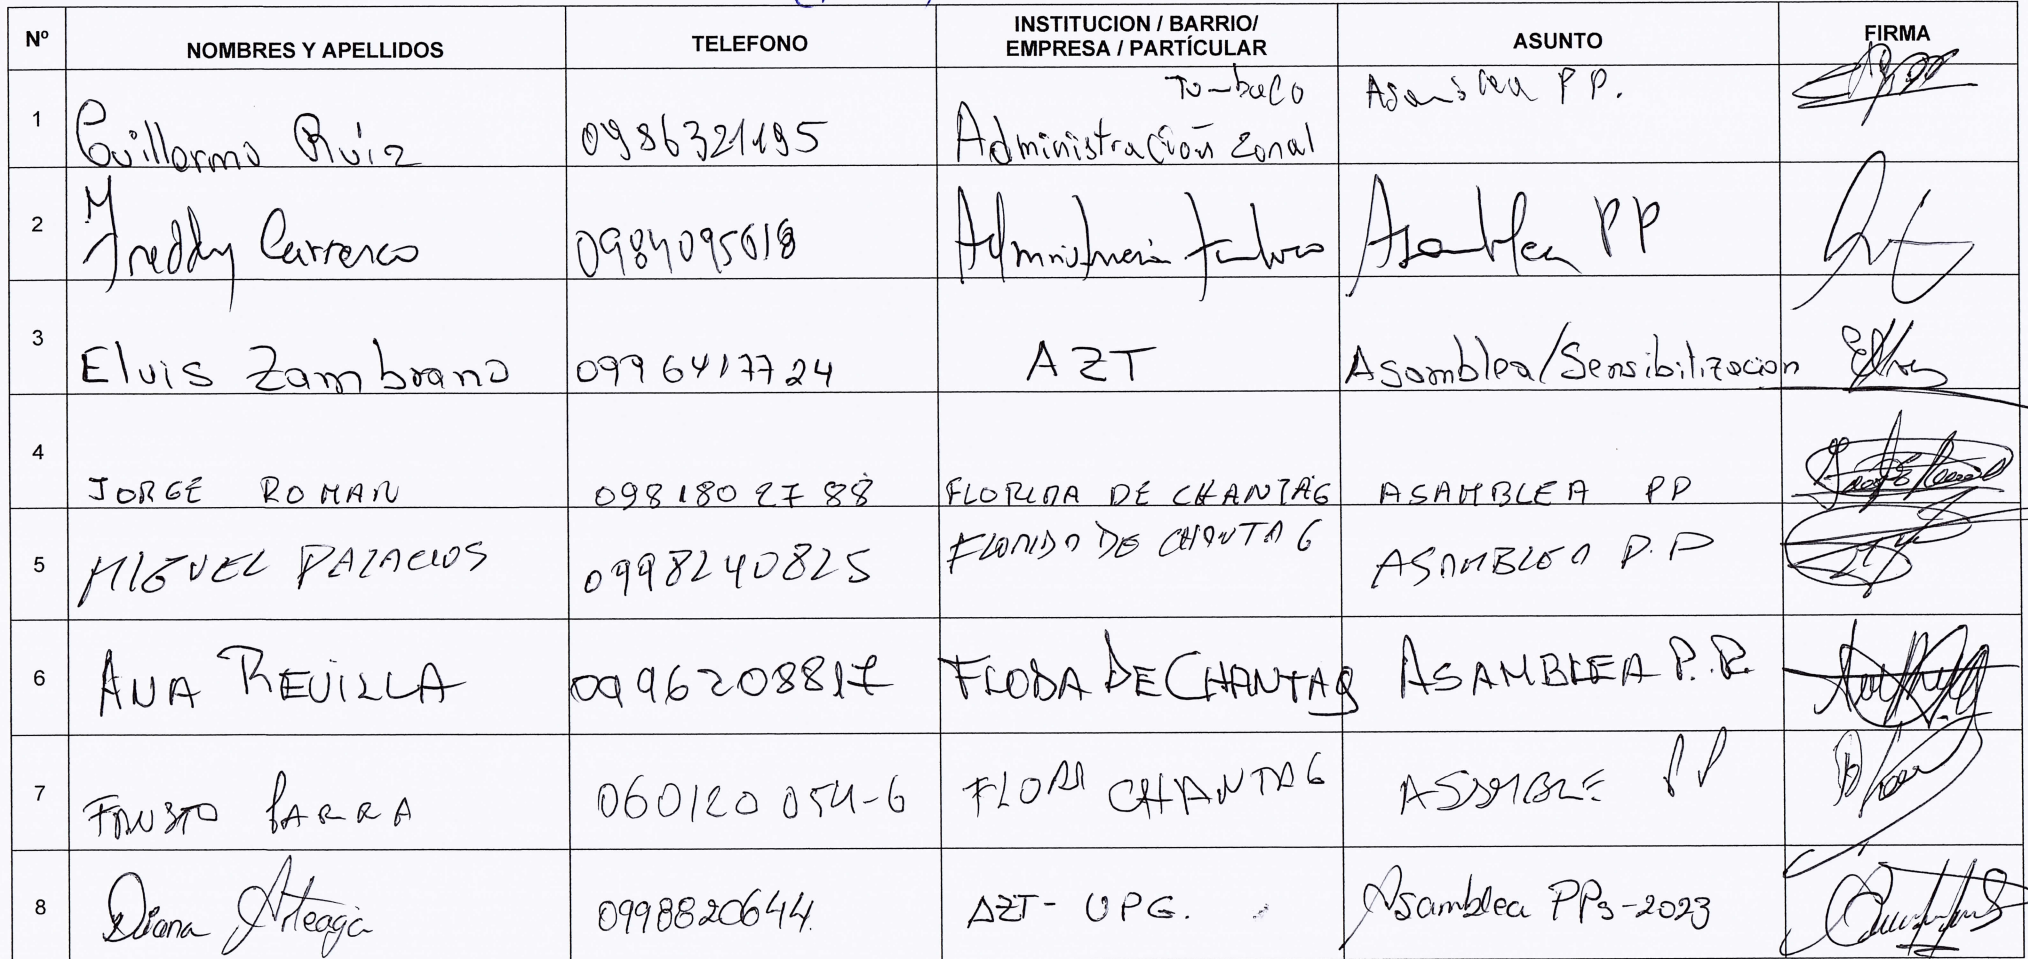 Nº NOMBRES Y APELLIDOS TELEFONO INSTITUCION / BARRIO/ EMPRESA / PARTÍCULAR ASUNTO FIRMA
1 Guillermo Ruiz 0986321195 Tumbaco Administración Zonal Asamblea PP.
2 Freddy Carrasco 0984095618 Asamblea PP
3 Elvis Zambrano 0996417724 AZT Asamblea/Sensibilizacion
4 JORGE ROMAN 0981802788 FLORIDA DE CHANTAG ASAMBLEA PP
5 MIGUEL PALACIOS 0998240825 FLORIDA DE CHANTAG ASAMBLEA P.P
6 ANA REVILLA 0996208817 FLODA DE CHANTAG ASAMBLEA P.P.
7 FAUSTO PARRA 060120054-6 CHANTAG ASAMBLE PP
8 Diana Arteaga 0998820644. AZT- UPG. Asamblea PPs-2023